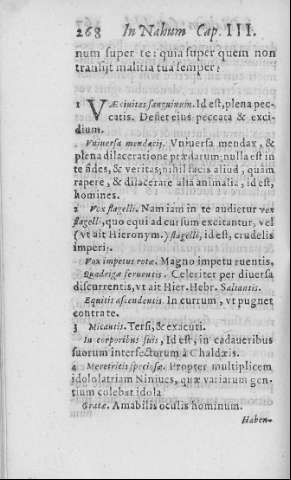 268 In Nahum Cap. III.
num super te: quia super quem non
transijt malitia tua semper?
1 VÆ ciuitas sanguinum. Id est, plena pec-
catis. Deflet eius peccata & exci-
dium.
Vniuersa mendacij. Vniuersa mendax, &
plena dilaceratione prædarum; nulla est in
te fides, & veritas; nihil facis aliud, quàm
rapere, & dilacerare alta animalia, id est,
homines.
2 Vox flagelli. Nam iam in te audietur vox
flagelli, quo equi ad cursum excitantur, vel
(vt ait Hieronym.) flagelli, id est, crudelis
imperij.
Vox impetus rotæ. Magno impetu ruentis.
Quadrigæ feruentis. Celeriter per diuersa
discurrentis, vt ait Hier. Hebr. Saliantis.
Equitis ascendentis. In currum, vt pugnet
contrate.
3 Micantis. Tersi, & exacuti.
In corporibus suis, Id est, in cadaueribus
suorum intersectorum à Chaldæis.
4 Meretricis speciosæ. Propter multiplicem
idololatriam Niniues, quæ variarum gen-
tium colebat idola
Gratæ. Amabilis oculis hominum.
Haben-